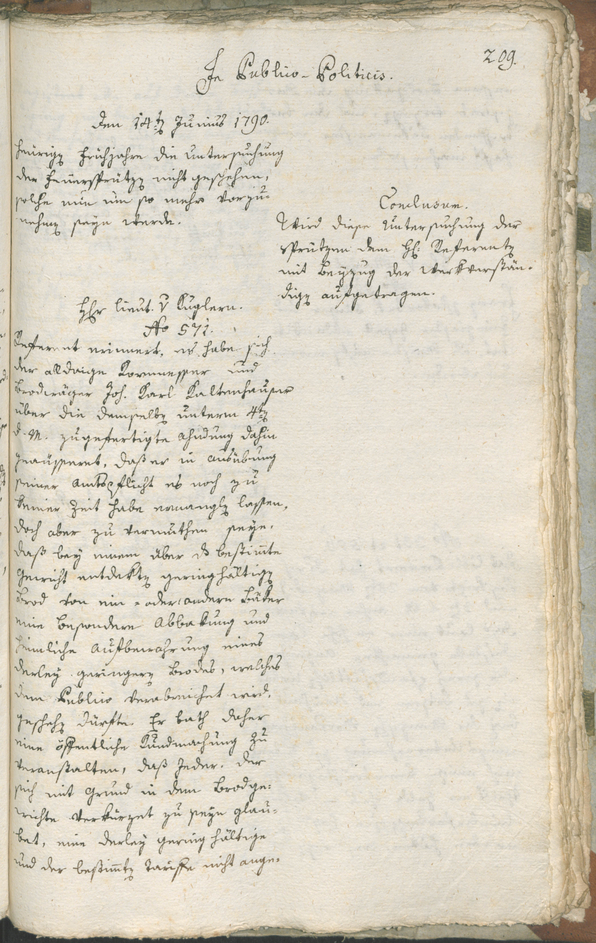 209.
In Publico-Politicis.
den 14t Junius 1790.
heurigen Frühjahre die Untersuchung
der Feuersprützen nicht geschehen,
solche nun um so mehr vorzu-
nehmen seyn werde.
Conclusum.
Wird diese Untersuchung der
Sprützen dem H: Referenten
mit Beyzug der Werkverstän-
digen aufgetragen.
Hr Lieut. v Kuglern.
No 571.
Referent erinnert, es habe sich
der alldasige Kornmesser und
Brodwäger Joh. Karl Kaltenhauser
über die demselben unterm 4ten
d. M. zugefertigte Ahndung dahin
geäusseret, daß er in Ausübung
seiner Amtspflicht es noch zu
keiner Zeit habe ermanglen lassen,
doch aber zu vermuthen seye,
daß bey einem über das bestimte
Gewicht entdekten geringhältigen
Brod von ein- oder andern Bäker
eine besondere Abbakung und
heimliche Aufbewahrung eines
derley geringern Brodes, welches
dem Publico verabreichet wird,
geschehen dürfte. Er bath daher
eine öffentliche Kundmachung zu
veranstalten, daß jeder, der
sich mit Grund in dem Brodge-
wichte verkürzet zu seyn glau-
bet, eine derley geringhältige
und der bestimten Tariffe nicht ange-